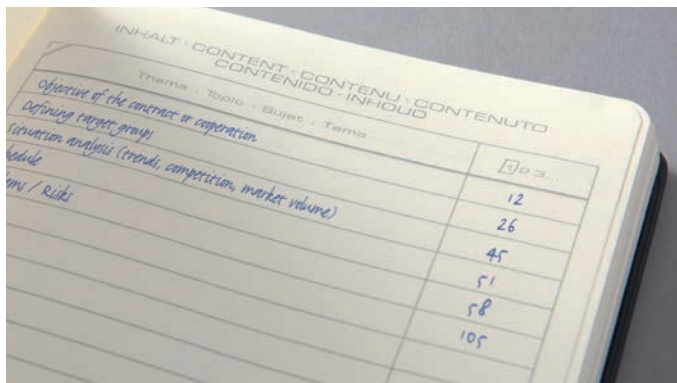 INHALT · CONTENT · CONTENU · CONTENUTO
CONTENIDO · INHOUD
Thema · Topic · Sujet · Tema 1 2 3...
Objective of the contract or cooperation 12
Defining target groups 26
Situation analysis (trends, competition, market volume) 45
hedule 51
ems / Risks 58
105